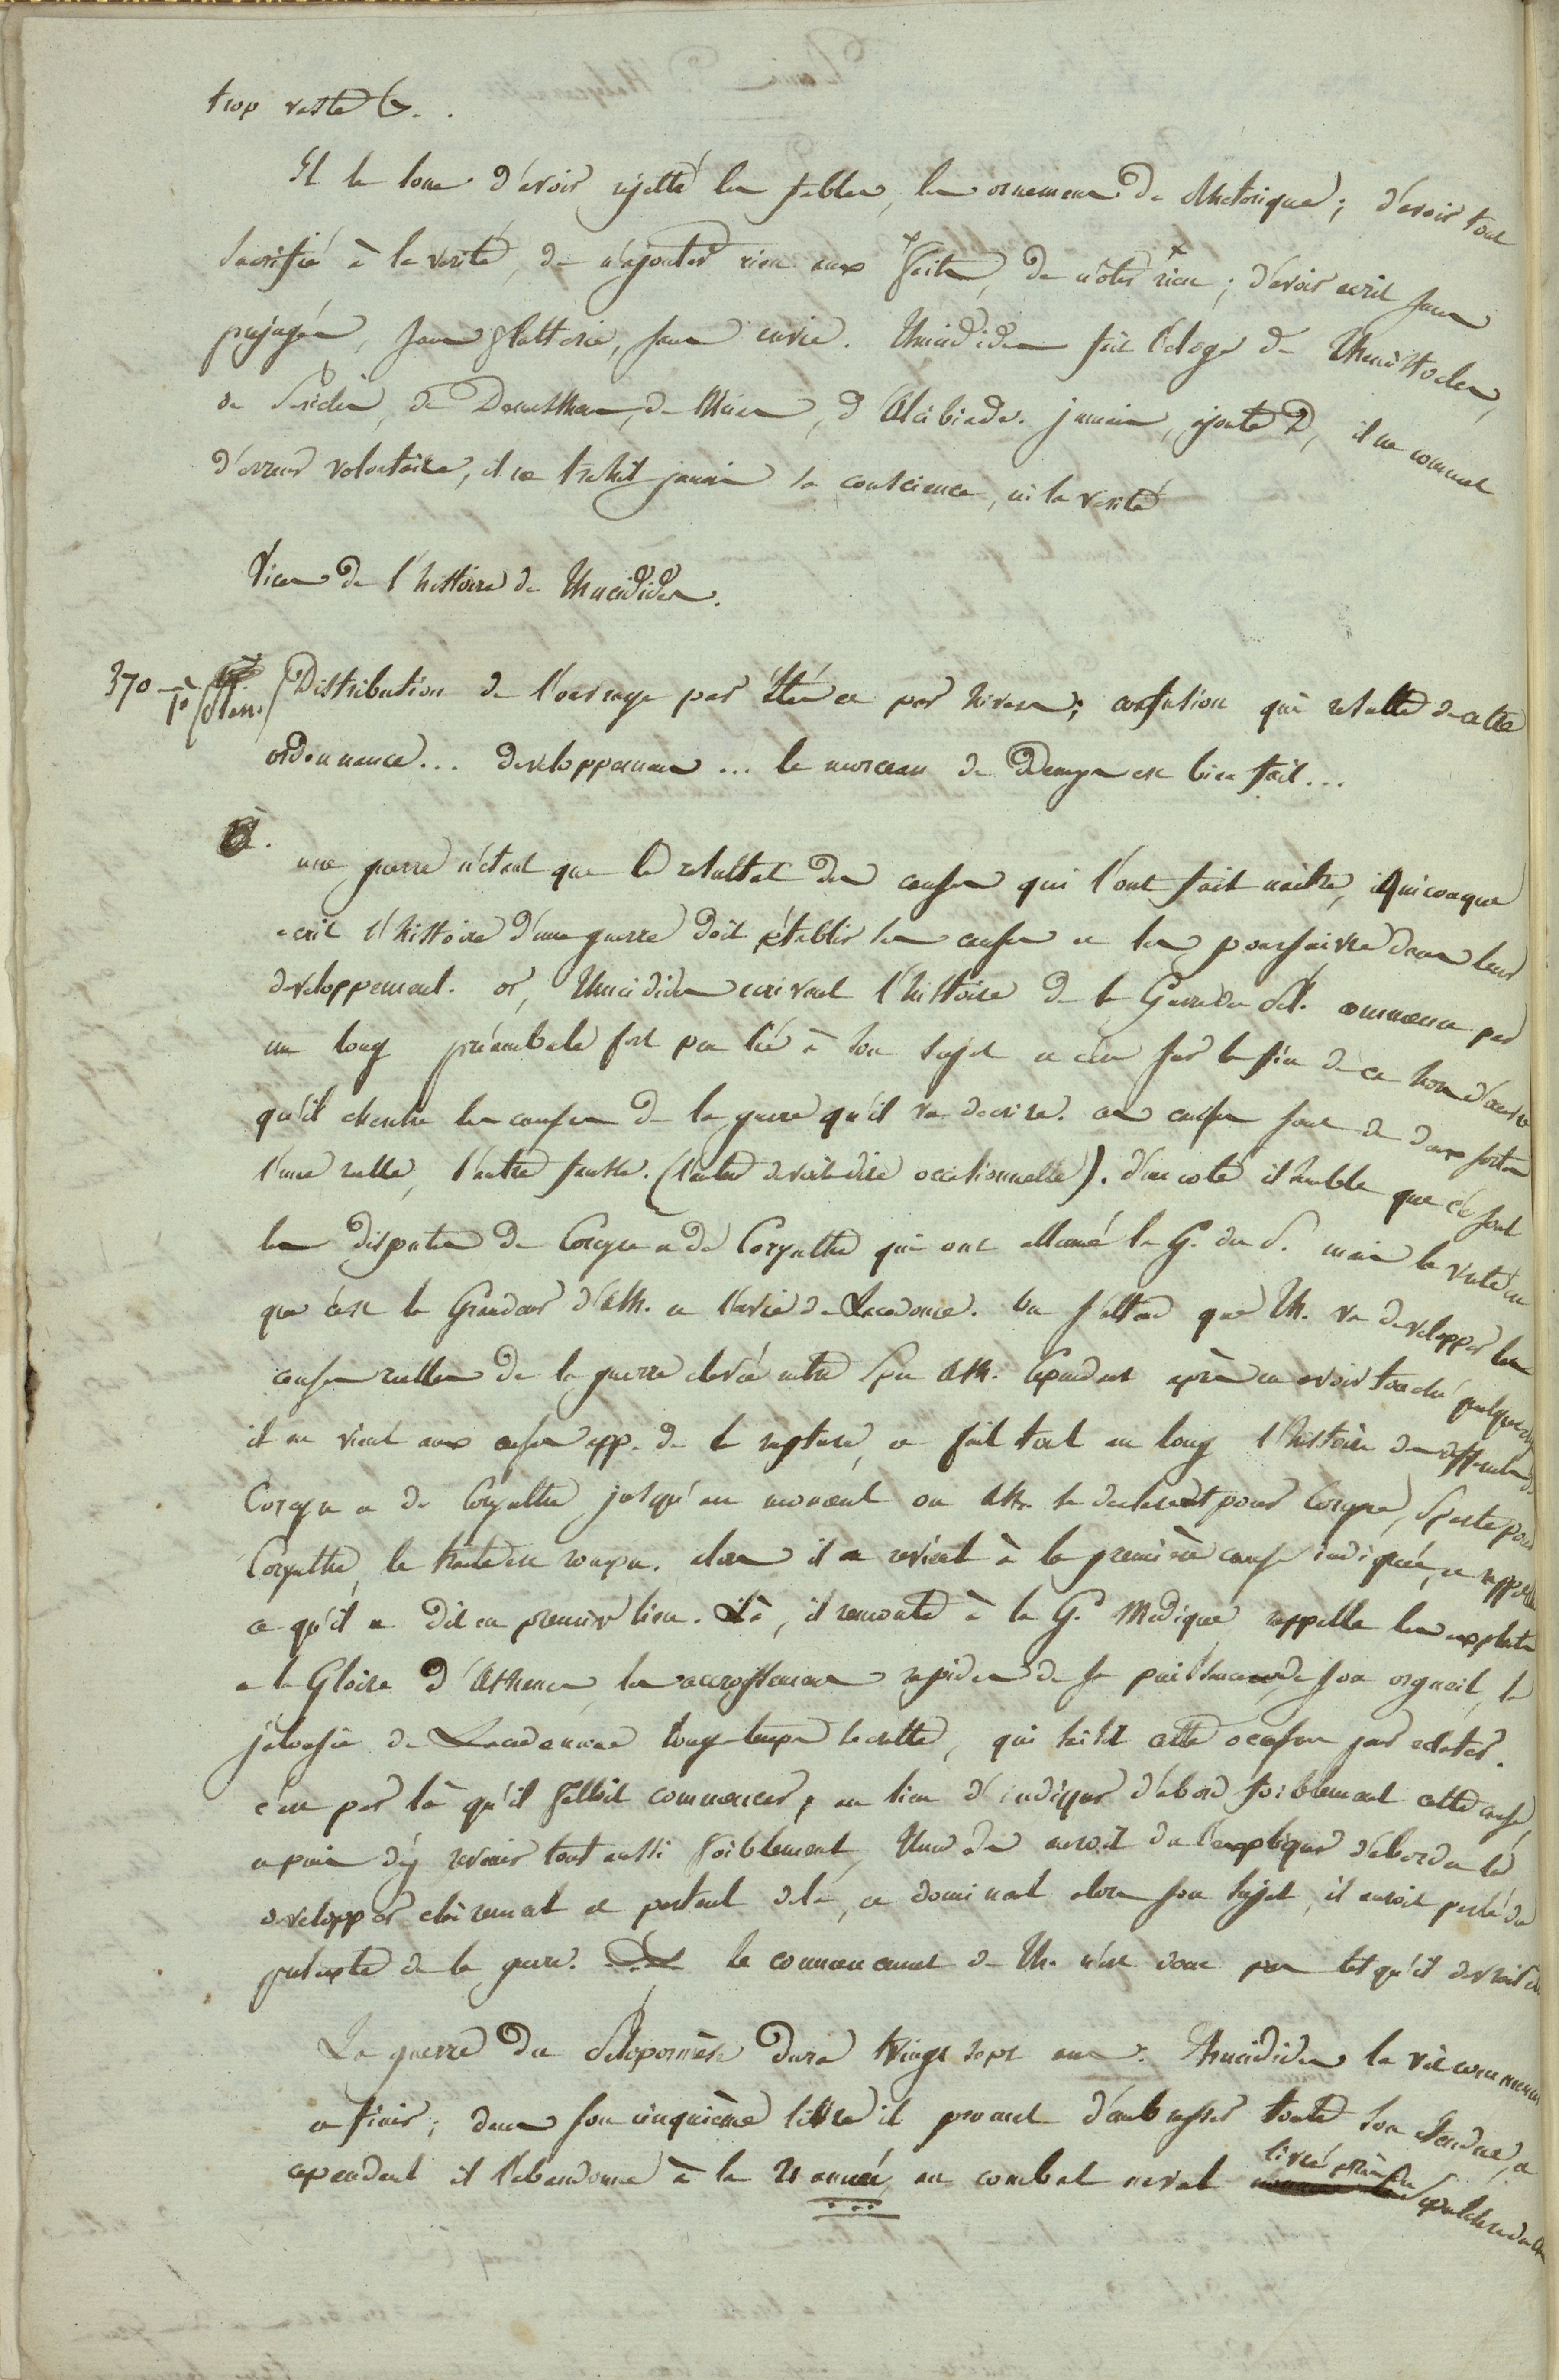 trop vaste &. .
Il le loue d'avoir rejetté les fables, les ornemens de Rhetorique; d'avoir tout
sacrifié à la verité, de n'ajouter rien aux faits, de n'oter rien; d'avoir ecrit sans
prejugés, sans flatterie, sans envie. Thucidides fait l'eloge de Themistocles,
de Periclès, de Demosthene, de Nicias, d'Alcibiade. jamais, ajoute D, il ne commet
d'erreur volontaire, il ne trahit jamais sa conscience, ni la verité
Vices de l'histoire de Thucidides.
370 1o Distribution de l'ouvrage par Étés et par hivers; confusion qui resulte de cette
ordonnance... developpemens... le morceau de Denys est bien fait...
2. une guerre n'etant que le resultat des causes qui l'ont fait naitre, Quiconque
ecrit l'histoire d'une guerre doit établir les causes et les poursuivre dans leur
developpement. or, Thucidides ecrivant l'histoire de la Guerre du Pel. commence par
un long préambule fort peu lié à son sujet et c'est sur la fin de ce hors d'œuvre
qu'il cherche les causes de la guerre qu'il va decrire. ces causes sont de deux sortes
l'une reelle, l'autre fausse. (l'auteur devoit dire occasionnelle). d'un coté il semble que ce sont
les disputes de Corcyre et de Corynthe qui ont allumé la G. du P. mais la verité est
que c'est la Grandeur d'Ath. et l'envie de Lacedemone. On s'attend que Th. va developper les
causes reelles de la guerre elevée entre Sp. et Ath. Cependant après en avoir touché quelque chose
il en vient aux causes app. de la rupture, et fait tout au long l'histoire des differends de
Corcyre et de Corynthe jusqu'au moment ou Ath. se declarent pour Corcyre, Sparte pour
Corynthe le traité est rompu. alors il en revient à la premiere cause indiquée, et rappelle
ce qu'il a dit en premier lieu. Là, il remonte à la G. Medique rappelle les exploits
et la Gloire d'Athenes, les accroissemens rapides de sa puissance de son orgueil, la
jalousie de Lacedemone longtemps secrette, qui saisit cette occasion pour eclater.
c'est par là qu'il falloit commencer, au lieu d'indiquer d'abord foiblement cette cause,
et puis d'y revenir tout aussi foiblement, Thucidide auroit du l'expliquer d'abord et la
developper clairement et partant de là, et dominant alors son sujet, il auroit parlé du
pretexte de la guerre. le commencement de Th. n'est donc pas tel qu'il devroit etre
La guerre du Peloponnèse dura vingt sept ans. Thucidides la vit commencer
et finir; dans son cinquième livre il promet d'embrasser toute son etendue, et
cependant il l'abandonne à la 21 année, au combat naval livré près du Sepulchre de